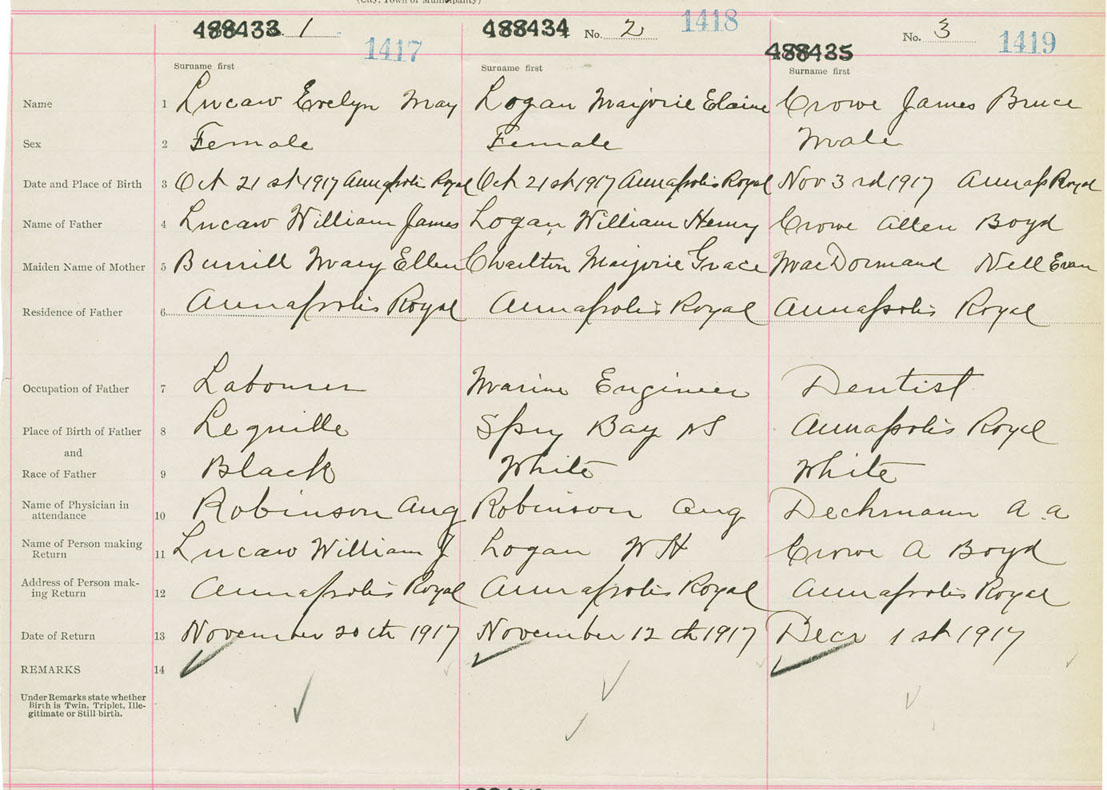 (City, Town or Municipality)
488433 1 1417 488434 No. 2 1418 488435 No. 3 1419
Surname first Surname first Surname first
Name 1 Lucaw Evelyn May Logan Marjorie Elaine Crowe James Bruce
Sex 2 Female Female Male
Date and Place of Birth 3 Oct 21 st 1917 Annapolis Royal Oct 21 st 1917 Annapolis Royal Nov 3 rd 1917 Annaps Royal
Name of Father 4 Lucaw William James Logan William Henry Crowe Allen Boyd
Maiden Name of Mother 5 Burrill Mary Ellen Charlton Marjorie Grace MacDormand Nell Evan
Residence of Father 6 Annapolis Royal Annapolis Royal Annapolis Royal
Occupation of Father 7 Labourer Marine Engineer Dentist
Place of Birth of Father 8 Lequille Spry Bay NS Annapolis Royal
and
Race of Father 9 Black White White
Name of Physician in
attendance 10 Robinson Aug Robinson Aug Dechmann A. a
Name of Person making
Return 11 Lucaw William J Logan W H Crowe A Boyd
Address of Person mak-
ing Return 12 Annapolis Royal Annapolis Royal Annapolis Royal
Date of Return 13 November 20th 1917 November 12 th 1917 Decr 1 st 1917
REMARKS 14
Under Remarks state whether
Birth is Twin, Triplet, Ille-
gitimate or Still birth.